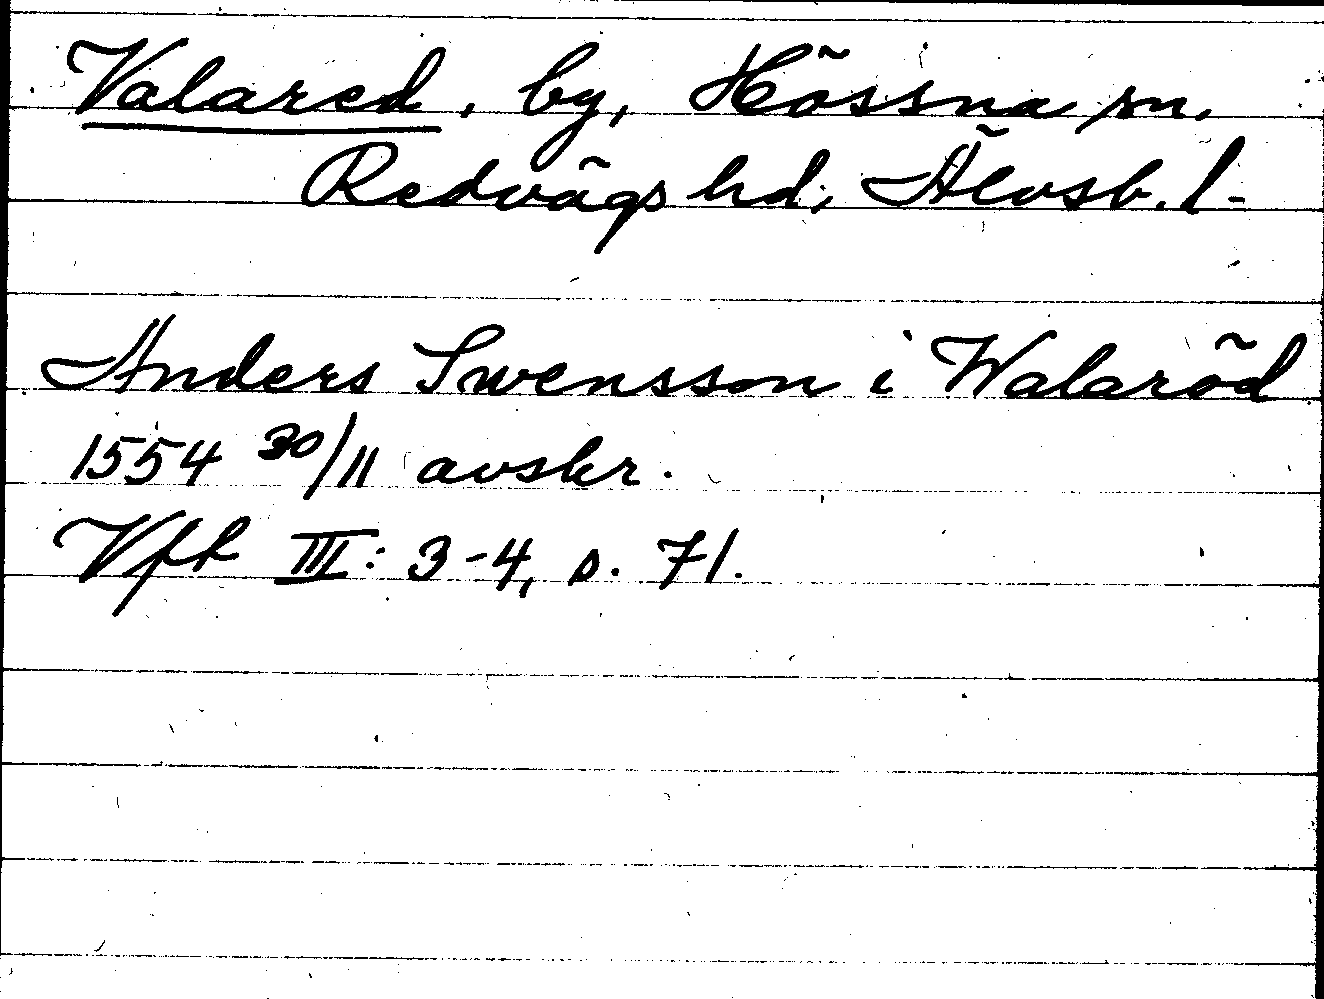 Valared, by, Hössna sn.
Redvägs hd, Älvsb. l.
Anders Swensson i Walaröd
1554 30/11 avskr.
Vfk III: 3-4, s. 71.